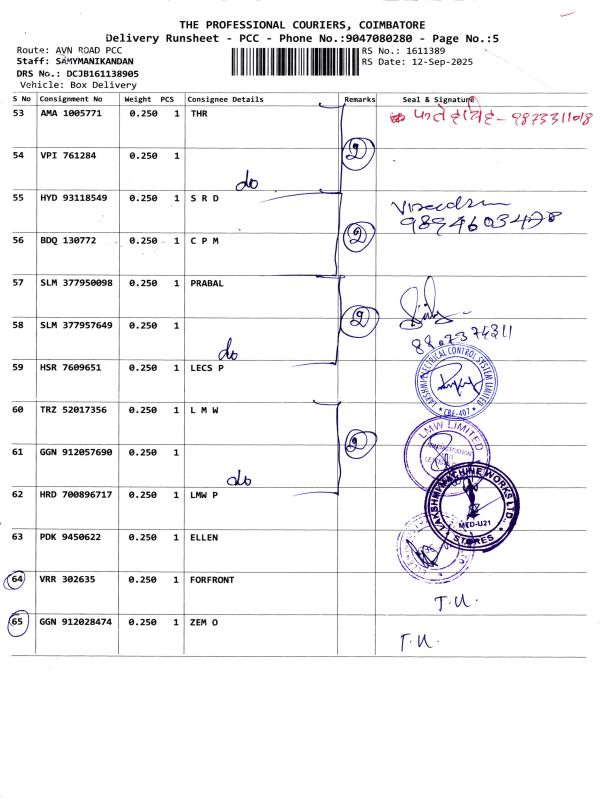 THE PROFESSIONAL COURIERS, COIMBATORE
Delivery Runsheet - PCC - Phone No.:9047080280 - Page No.:5
Route: AVN ROAD PCC RS No.: 1611389
Staff: SAMYMANIKANDAN RS Date: 12-Sep-2025
DRS No.: DCJB161138905
Vehicle: Box Delivery
S No Consignment No Weight PCS Consignee Details Remarks Seal & Signature
53 AMA 1005771 0.250 1 THR 9873311018
54 VPI 761284 0.250 1 do 2
55 HYD 93118549 0.250 1 S R D 9894603478
56 BDQ 130772 0.250 1 C P M 2
57 SLM 377950098 0.250 1 PRABAL
58 SLM 377957649 0.250 1 do 2 8807374311
59 HSR 7609651 0.250 1 LECS P LAKSHMI ELECTRICAL CONTROL SYSTEM LIMITED CBE-407
60 TRZ 52017356 0.250 1 L M W LMW LIMITED
61 GGN 912057690 0.250 1 do 2
62 HRD 700896717 0.250 1 LMW P LAKSHMI MACHINE WORKS LTD. MTD-U21 STORES
63 PDK 9450622 0.250 1 ELLEN
64 VRR 302635 0.250 1 FORFRONT T.U.
65 GGN 912028474 0.250 1 ZEM O T.U.